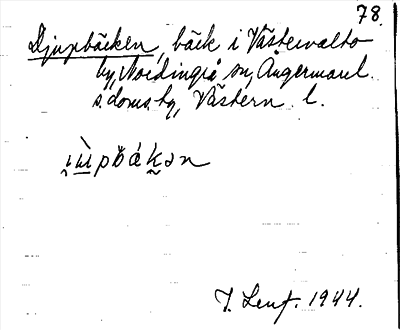 78.
Djupbäcken, bäck i Västervalto
by, Nordingrå sn, Ångermanl.
s. doms. hg, Västern. l.
1944.